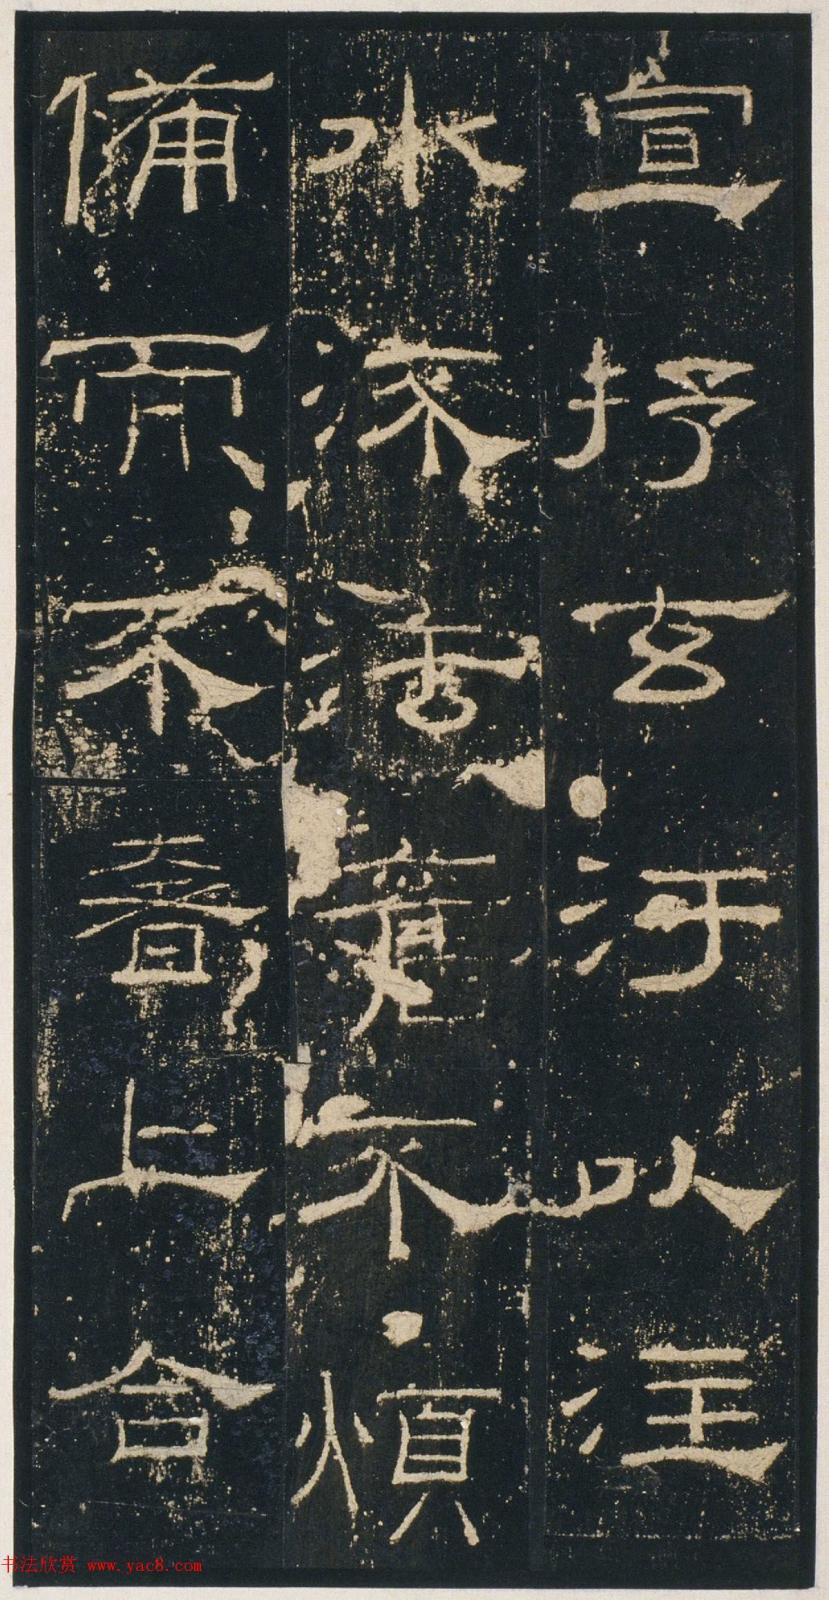 宣抒玄汙以注
水流法舊不煩
備而不奢上合
书法欣赏 www.yac8.com